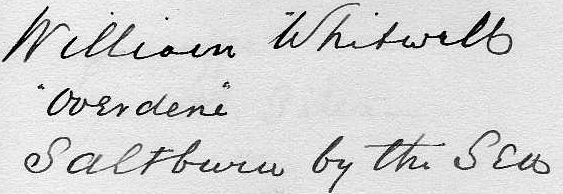 William Whitwell
"Overdene"
Saltburn by the Sea